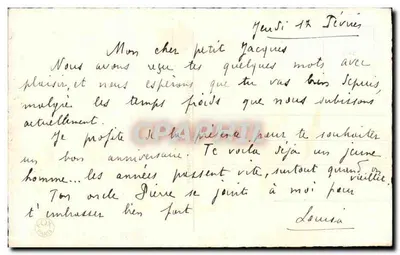 Jeudi 12 Février
Mon cher petit Jacques
Nous avons reçu tes quelques mots avec
plaisir, et nous espérons que tu vas bien depuis,
malgré les temps froids que nous subissons
actuellement.
Je profite de la présente pour te souhaiter
un bon anniversaire. Te voilà déjà un jeune
homme... les années passent vite, surtout quand on
vieillit.
Ton oncle Pierre se joint à moi pour
t'embrasser bien fort
Louisa